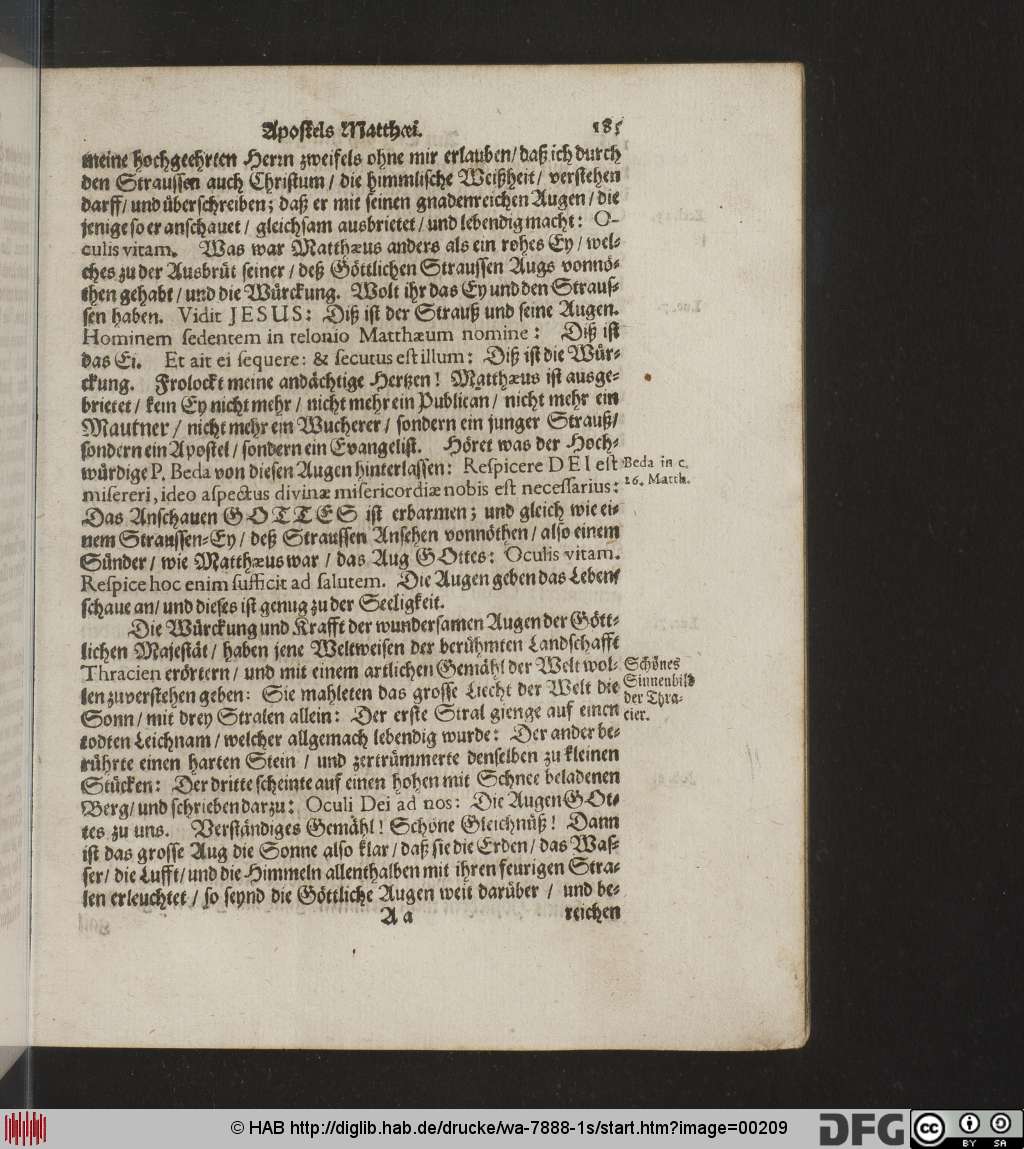 Apostels Matthæi. 185
meine hochgeehrten Herrn zweifels ohne mir erlauben/ daß ich durch
den Straussen auch Christum / die himmlische Weißheit / verstehen
darff/ und überschreiben; daß er mit seinen gnadenreichen Augen / die
jenige so er anschauet / gleichsam ausbrietet / und lebendig macht: O-
culis vitam. Was war Matthæus anders als ein rohes Ey / wel-
ches zu der Ausbrüt seiner / deß Göttlichen Straussen Augs vonnö-
then gehabt / und die Würckung. Wolt ihr das Ey und den Straus-
sen haben. Vidit JESUS: Diß ist der Strauß und seine Augen.
Hominem sedentem in telonio Matthæum nomine: Diß ist
das Ei. Et ait ei sequere: & secutus est illum: Diß ist die Wür-
ckung. Frolockt meine andächtige Hertzen! Matthæus ist ausge-
brietet / kein Ey nicht mehr / nicht mehr ein Publican / nicht mehr ein
Mautner / nicht mehr ein Wucherer / sondern ein junger Strauß/
sondern ein Apostel / sondern ein Evangelist. Höret was der Hoch-
würdige P. Beda von diesen Augen hinterlassen: Respicere DEI est
Beda in c.
misereri, ideo aspectus divinæ misericordiæ nobis est necessarius:
26. Matth.
Das Anschauen GOTTES ist erbarmen; und gleich wie ei-
nem Straussen-Ey / deß Straussen Ansehen vonnöthen / also einem
Sünder / wie Matthæus war / das Aug GOttes: Oculis vitam.
Respice hoc enim sufficit ad salutem. Die Augen geben das Leben/
schaue an / und dieses ist genug zu der Seeligkeit.
Die Würckung und Krafft der wundersamen Augen der Gött-
lichen Majestät / haben jene Weltweisen der berühmten Landschafft
Thracien erörtern / und mit einem artlichen Gemähl der Welt wol-
Schönes
len zuverstehen geben: Sie mahleten das grosse Liecht der Welt die
Sinnenbild
Sonn / mit drey Stralen allein: Der erste Stral gienge auf einen
der Thra-
cier.
todten Leichnam / welcher allgemach lebendig wurde: Der ander be-
rührte einen harten Stein / und zertrümmerte denselben zu kleinen
Stücken: Der dritte scheinte auf einen hohen mit Schnee beladenen
Berg / und schrieben darzu: Oculi Dei ad nos: Die Augen GOt-
tes zu uns. Verständiges Gemähl! Schöne Gleichnüß! Dann
ist das grosse Aug die Sonne also klar / daß sie die Erden / das Was-
ser / die Lufft / und die Himmeln allenthalben mit ihren feurigen Stra-
len erleuchtet / so seynd die Göttliche Augen weit darüber / und be-
A a reichen
© HAB http://diglib.hab.de/drucke/wa-7888-1s/start.htm?image=00209
DFG
cc BY SA